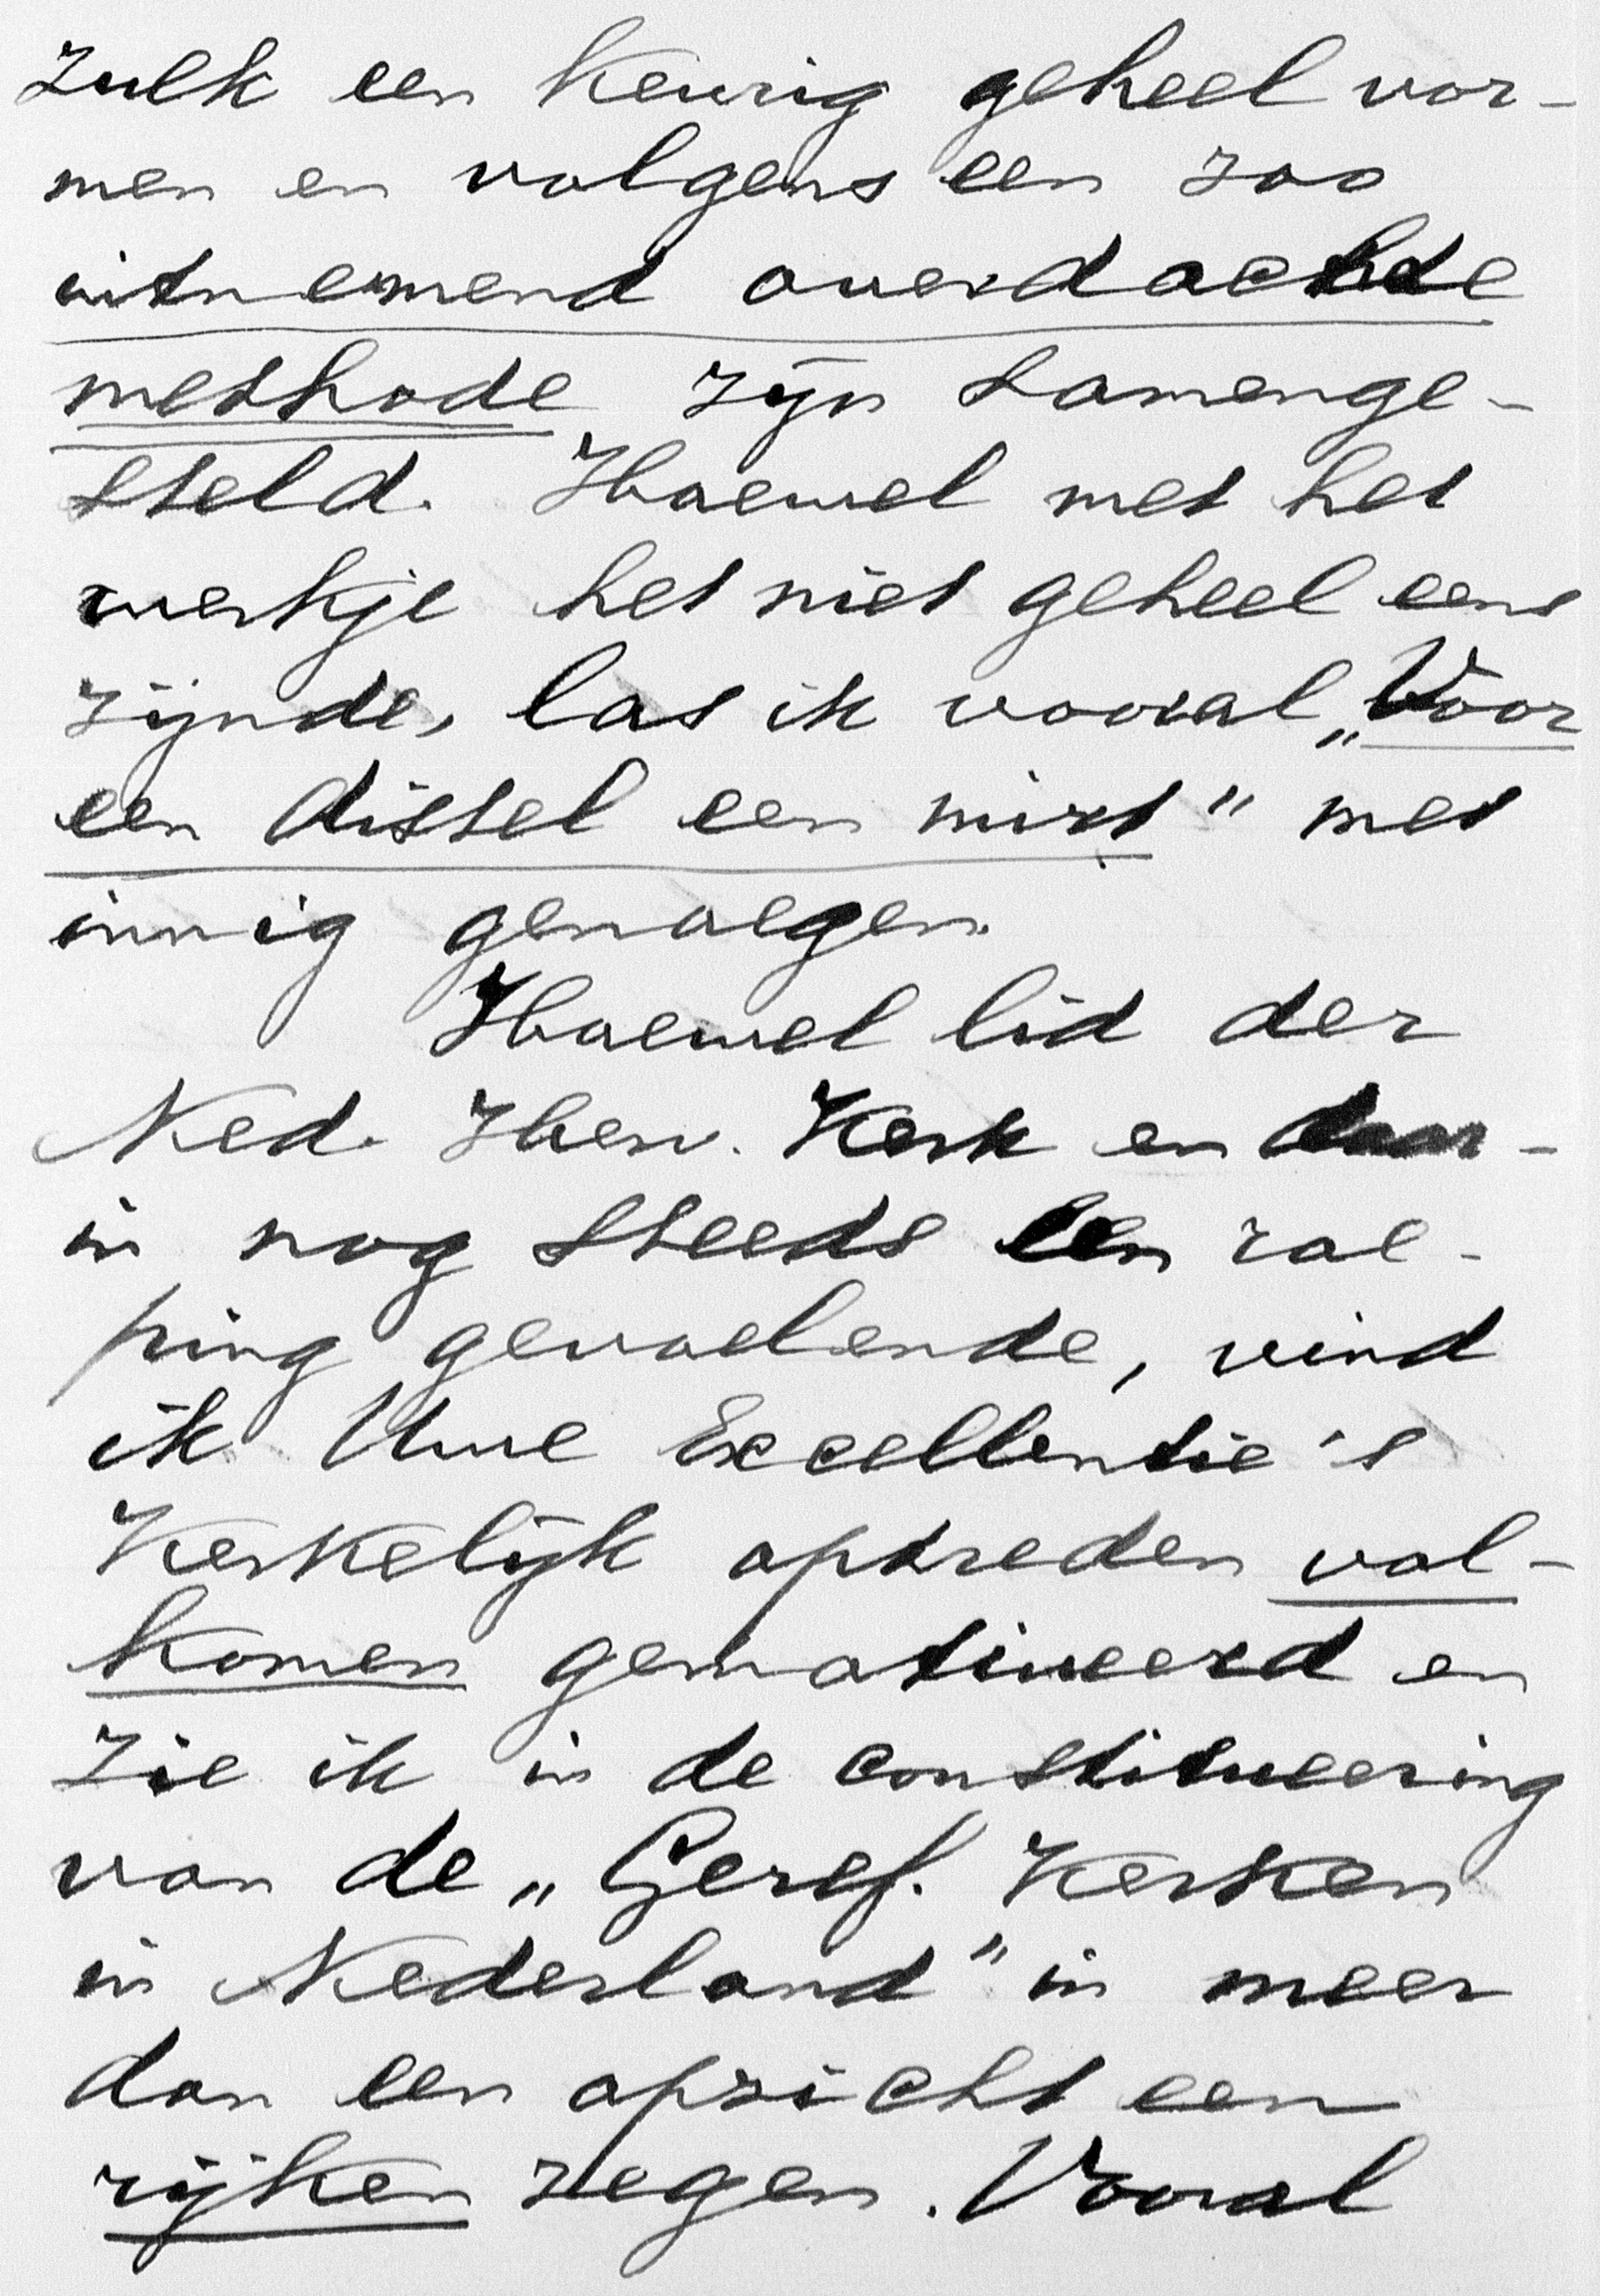 zulk een keurig geheel vor-
men en volgens een zoo
uitnemend overdachte
methode zijn samenge-
steld. Hoewel met het
werkje het niet geheel eens
zijnde, las ik vooral „Voor
een distel een mirt" met
innig genoegen.
Hoewel lid der
Ned. Herv. Kerk en daar-
in nog steeds een roe-
ping gevoelende, vind
ik Uwe Excellentie's
Kerkelijk optreden vol-
komen gemotiveerd en
zie ik in de constitueering
van de „Geref. Kerken
in Nederland" in meer
dan een opzicht een
rijken zegen. Vooral